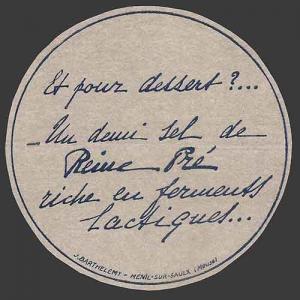 Et pour dessert ?...
_ Un demi sel de
Reine Pré
riche en ferments
lactiques...
J. BARTHELEMY - MÉNIL-SUR-SAULX (MEUSE)